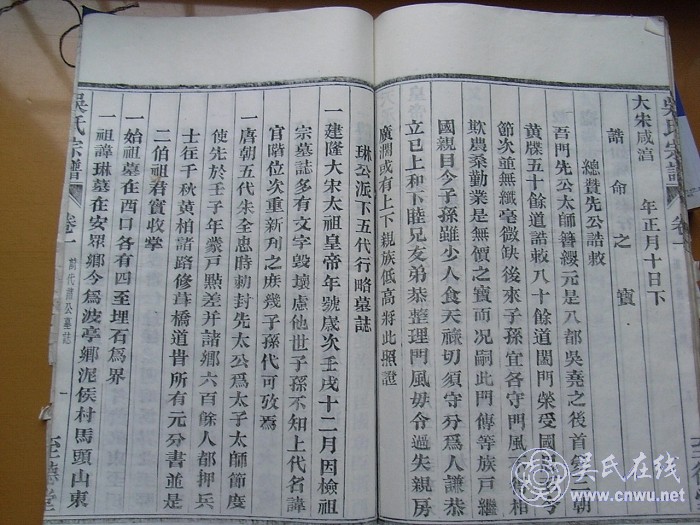 吳氏宗譜
大宋咸富 年正月十日下
誥命之寶
總贊先公誥敕
吾門先公太師簪纓元是八都吳堯之後首
朝
黃牒五十餘道誥敕八十餘道闔門榮受國
節次並無纖毫微缺後來子孫宜各守門風
相
欺農桑勤業是無價之寶而况嗣此門傳等族戸繼
國親目今子孫雖少人食天祿切須守分爲人謙恭
立已上和下睦兄友弟恭整理門風毋令過失親房
廣濶或有上下親族低高將此照證
琳公派下五代行略墓誌
一建隆大宋太祖皇帝年號歲次壬戌十二月因檢祖
宗墓誌多有文字毀壞慮他世子孫不知上代名諱
官階位次重新刋之庶幾子孫代可攷焉
一唐朝五代朱全忠時勅封先太公爲太子太師節度
使先於壬子年蒙戸點差并諸鄉六百餘人都押兵
士往千秋黃柏諸路修葺橋道昔所有元分書並是
二伯祖君實收掌
一始祖墓在酉口各有四至埋石爲界
一祖諱琳墓在安眾鄉今爲波亭鄉泥侯村馬頭山東
吳氏宗譜
卷一
誥公墓誌
一
至德堂
吴氏在线
www.cnwu.net